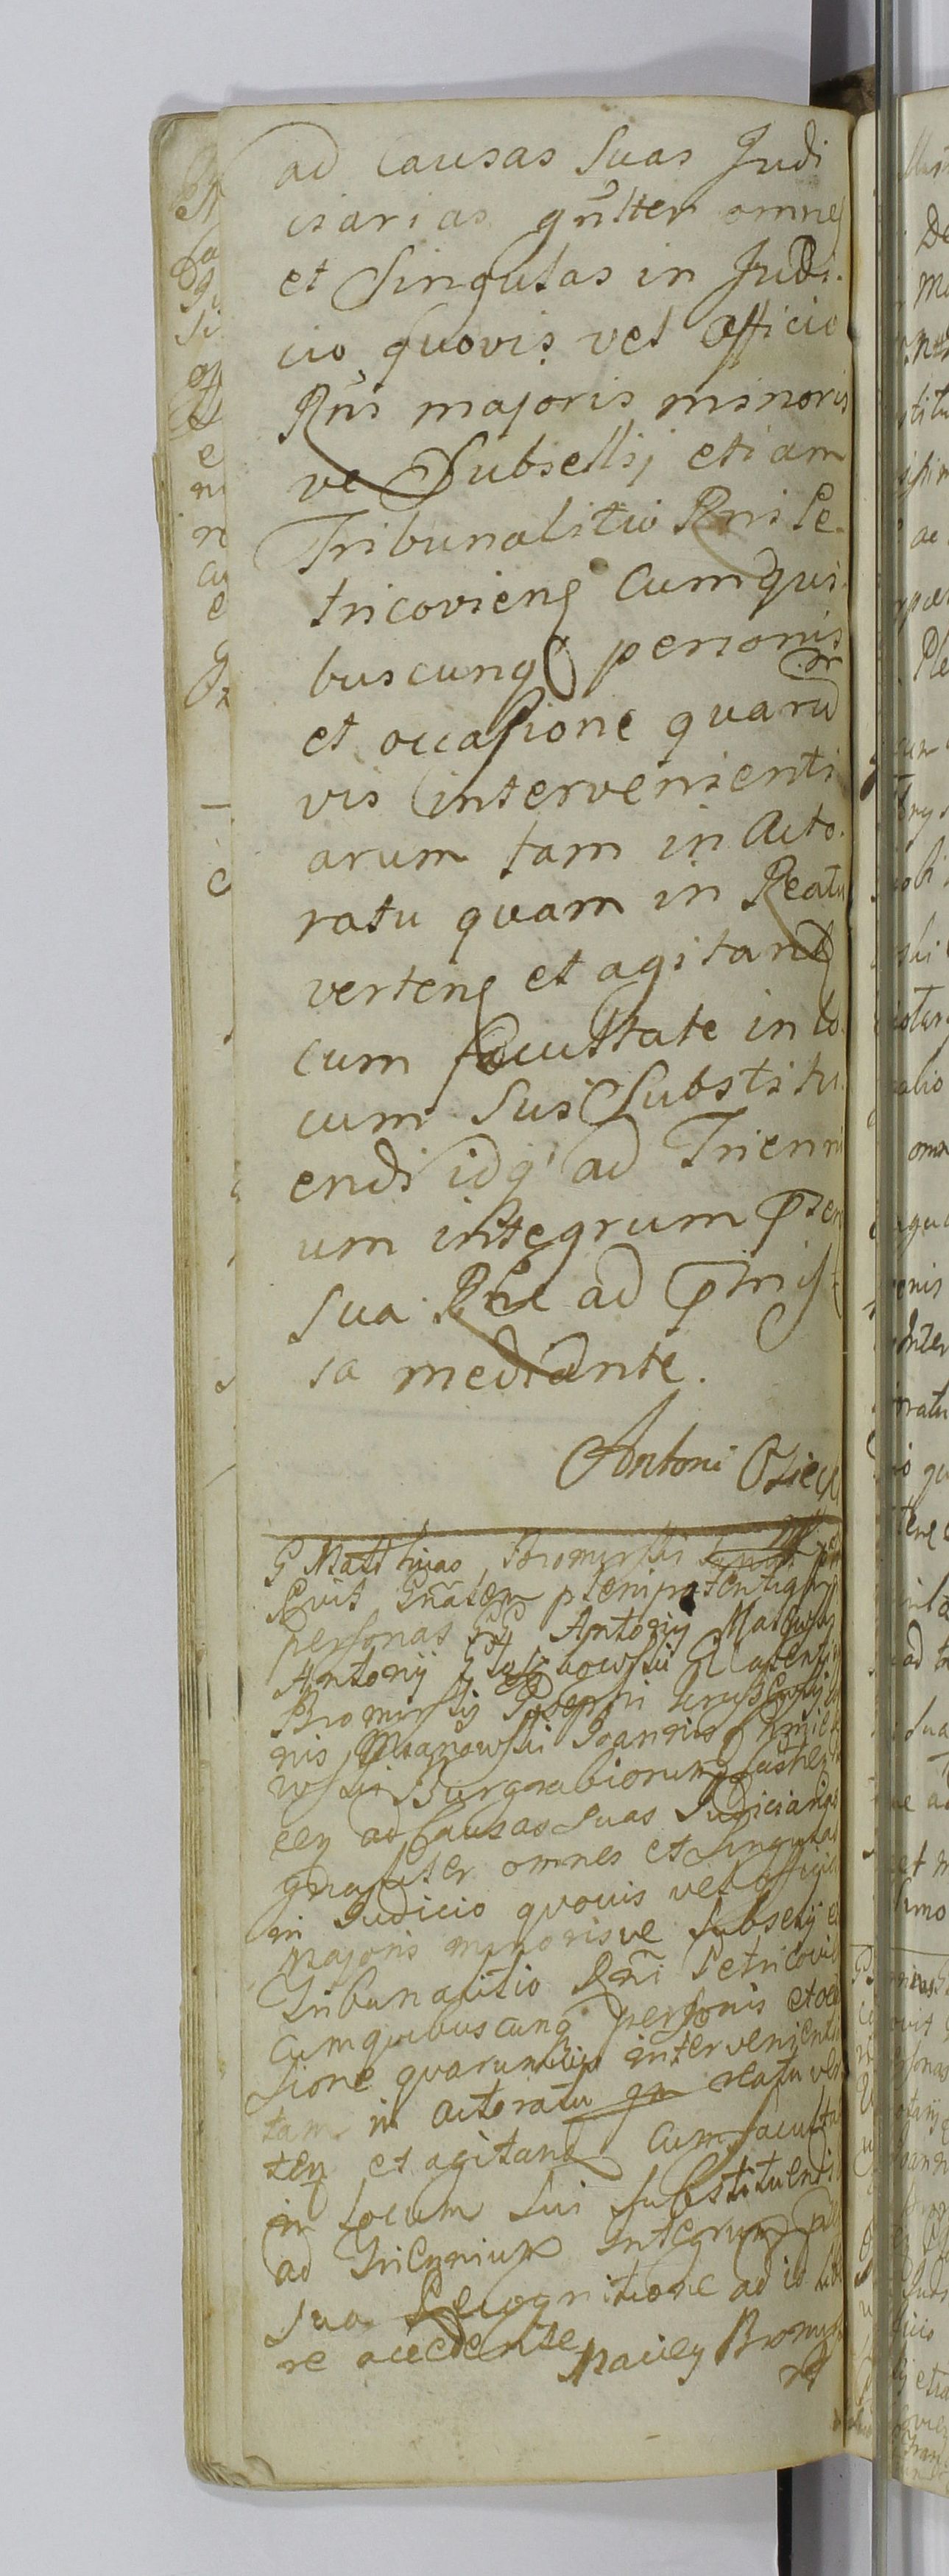 ad Causas Suas Judi
ciarias gnlter omnes
et Singulas in Judi.
cio quovis vel Officio
Rni majoris minoris
ve Subsellij etiam
Tribunalitio Rni Pe.
tricovien Cumqui.
buscunq personis
et occasione quarum
vis intervenienti
arum tam in Acto.
ratu quam in Reatu
verten et agitand
cum facultate in lo.
cum Sui Substitu.
endi idq ad Trienni
um integrum
Sua Rne ad
sa mediante.
Antoni
G Matthias Bromirski
personas GG Antonij
Antonij
Bromirski Josephi
nis Joannis
Burgrabiorum
ad Causas Suas Judiciarias
gnaliter omnes et Singulas
in Judicio quovis vel Officio
Majoris minorisve Subselij
Tribunalitio Rni Petricovien
Cumquibuscunq personis et oca
sione quarumvis intervenienti
tam in actoratu qm reatu ver
ten et agitand Cum facultate
in locum Sui Substituendi
ad Triennium Integrum
Sua Recognitione ad id
re accedente
Maciey Bromirski